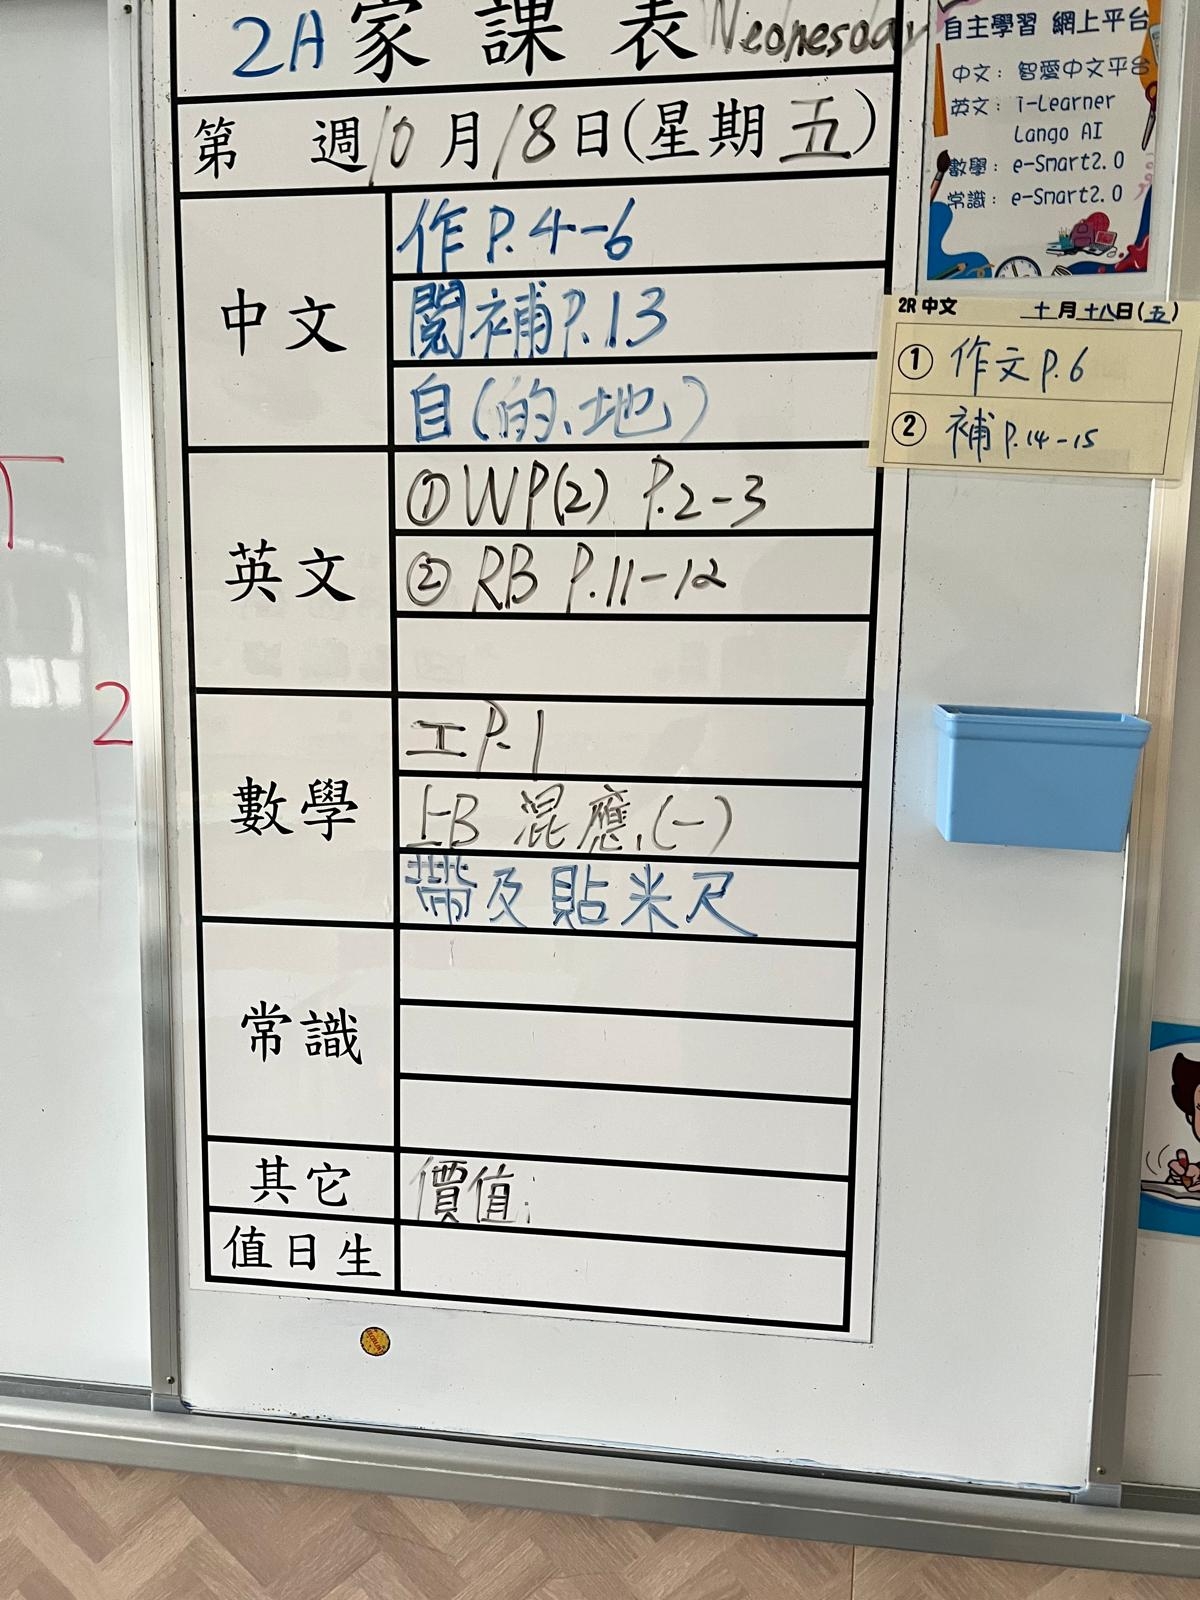 2A 家課表 Wednesday
第 週 10月18日(星期五)
中文
作 P.4-6
閱補 P.13
自(的、地)
英文
① WP(2) P.2-3
② RB P.11-12
數學
工 P.1
上B 混應.(一)
帶及貼米尺
常識
其它
價值
值日生
自主學習 網上平台
中文: 智愛中文平台
英文: i-Learner
Lango AI
數學: e-Smart2.0
常識: e-Smart2.0
2R 中文 十月十八日(五)
① 作文 P.6
② 補 P.14-15
2